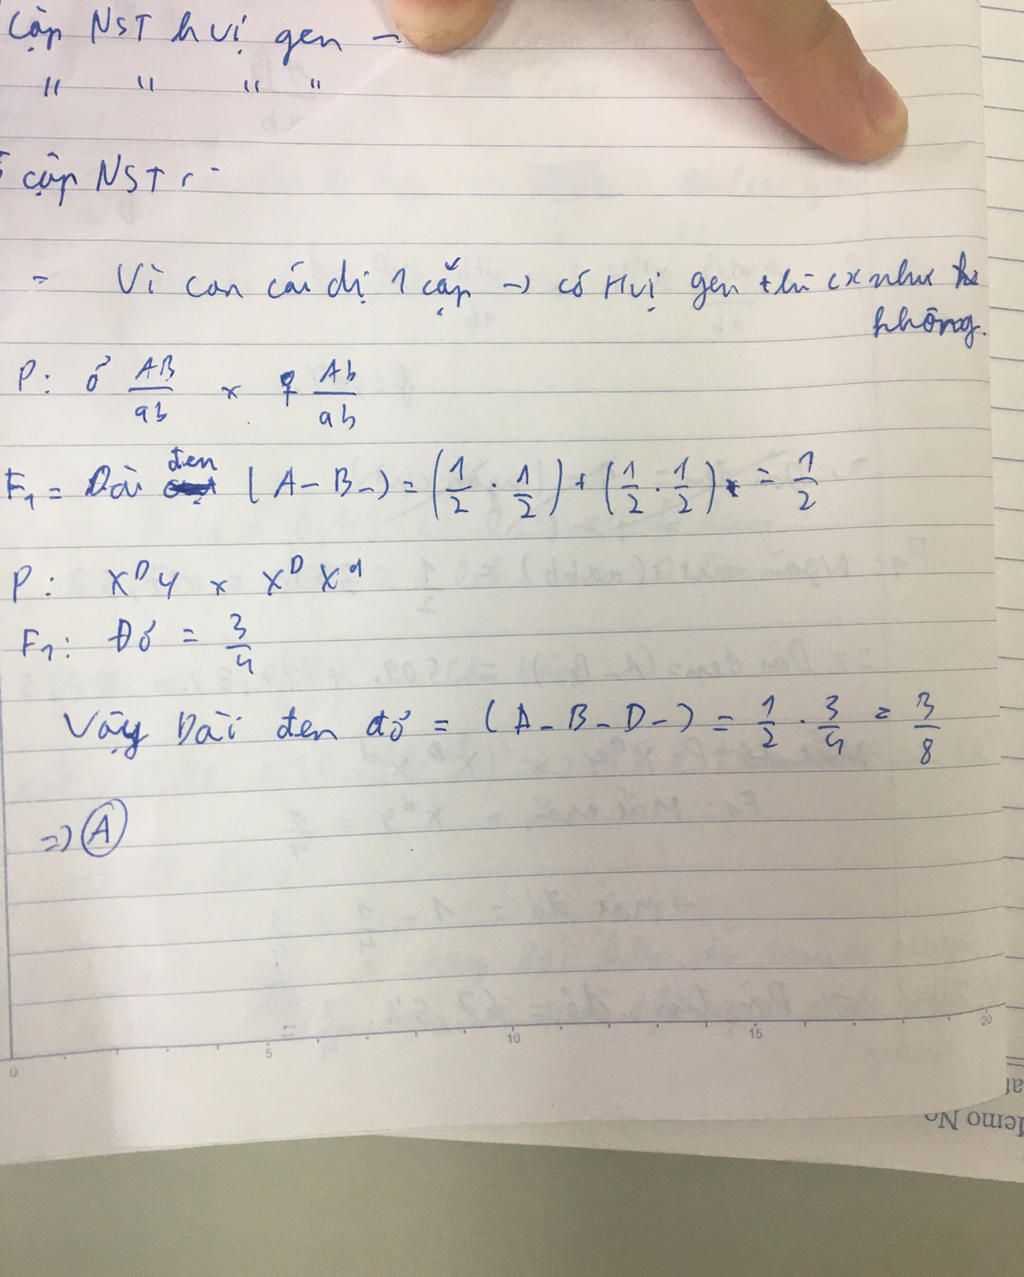 Cặp NST hvị gen -
"  "  "  "
cặp NST
= Vì con cái dị 1 cặp -> có Hvị gen thì cx như
không.
P: ♂ AB/ab x ♀ Ab/ab
F1 = Dài đen (A-B-) = (1/2 . 1/2) + (1/2 . 1/2) = 1/2
P: X^D Y x X^D X^d
F1: Đỏ = 3/4
Vậy Dài đen đỏ = (A-B-D-) = 1/2 . 3/4 = 3/8
=> A
0 5 10 15 20
emo No